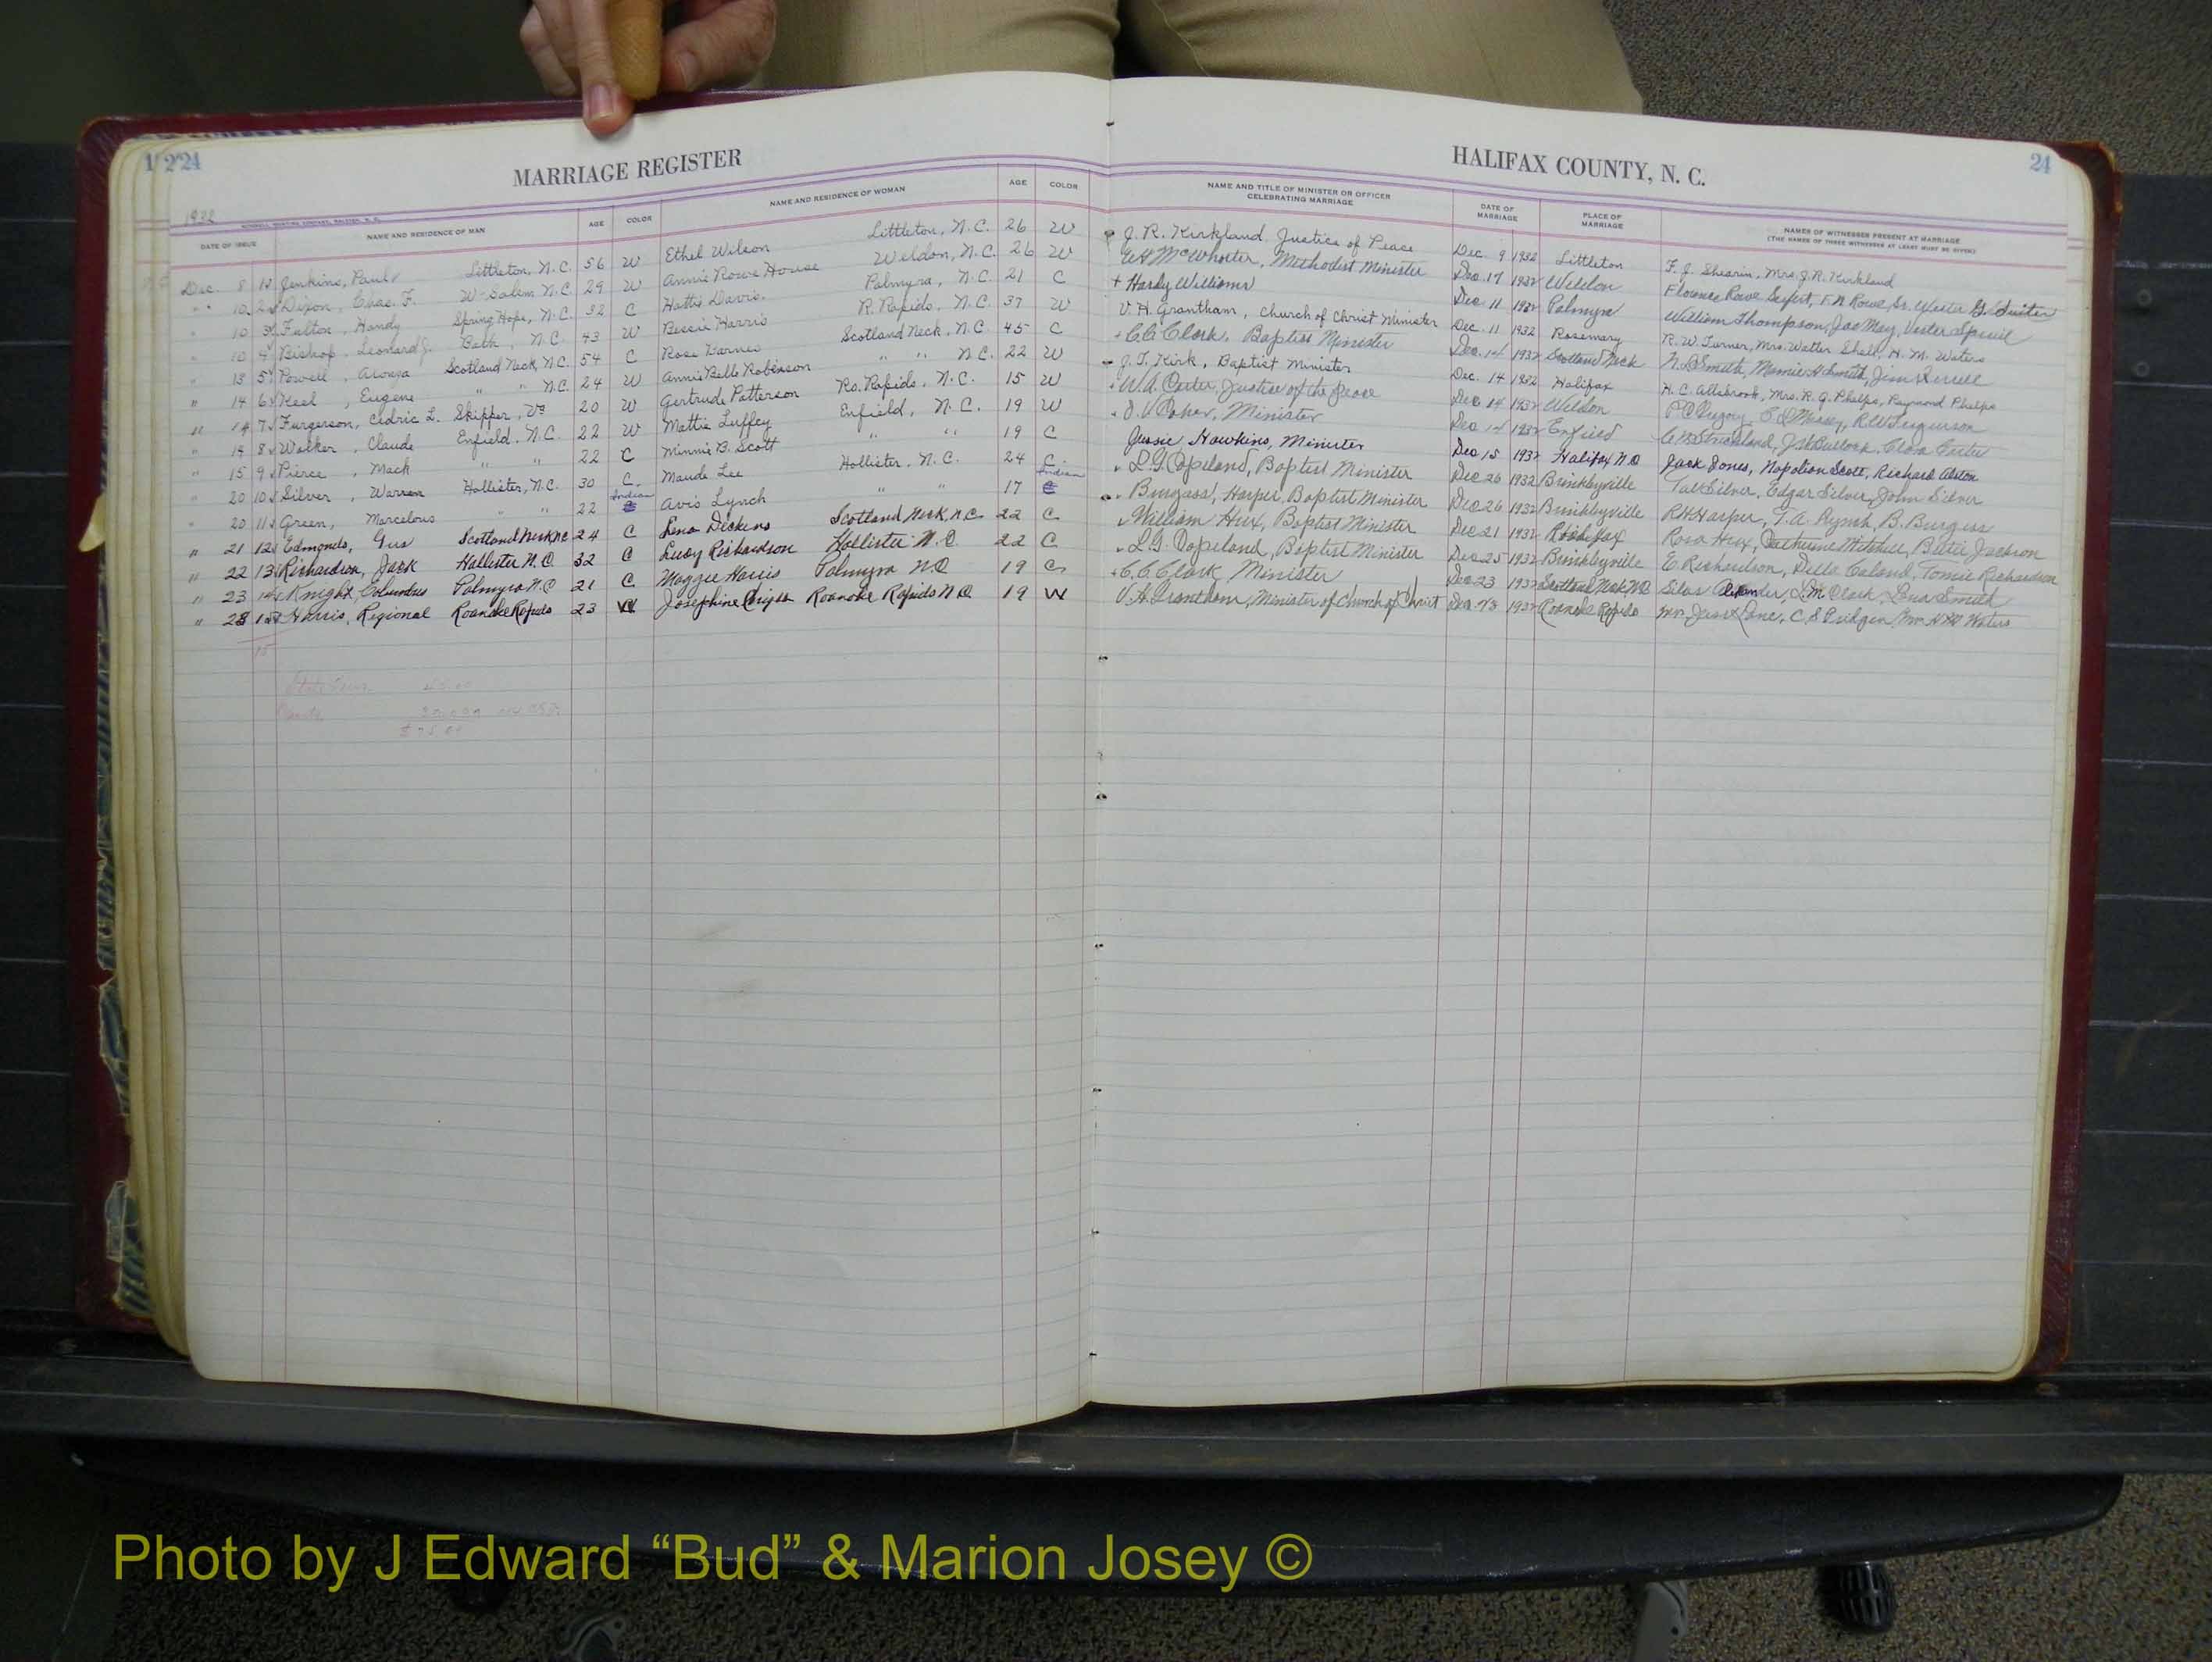 1 2 24 MARRIAGE REGISTER HALIFAX COUNTY, N. C. 24
1932
DATE OF ISSUE NAME AND RESIDENCE OF MAN AGE COLOR NAME AND RESIDENCE OF WOMAN AGE COLOR NAME AND TITLE OF MINISTER OR OFFICER CELEBRATING MARRIAGE DATE OF MARRIAGE PLACE OF MARRIAGE NAMES OF WITNESSES PRESENT AT MARRIAGE (THE NAMES OF THREE WITNESSES AT LEAST MUST BE GIVEN)
Dec. 8 1 Jenkins, Paul Littleton, N.C. 56 W Ethel Wilson Littleton, N.C. 26 W J. R. Kirkland Justice of Peace Dec. 9 1932 Littleton F. J. Shearin, Mrs. J. R. Kirkland
" 10 2 Dixon, Chas. F. W-Salem N.C. 29 W Annie Rowe House Weldon, N.C. 26 W McWhorter, Methodist Minister Dec. 17 1932 Weldon Florence Rowe Seifert, F. N. Rowe, Sr.
" 10 3 Fulton, Handy Spring Hope, N.C. 32 C Hattie Davis Palmyra, N.C. 21 C Hardy Williams Dec 11 1932 Palmyra William Thompson, Jas May, Vester Spruill
" 10 4 Bishop, Leonard J. N.C. 43 W Bessie Harris R. Rapids, N.C. 37 W V. H. Grantham, Church of Christ Minister Dec. 11 1932 Rosemary R. W. Turner, Mrs. Walter Shell, H. M. Waters
" 13 5 Powell, Scotland Neck, N.C. 54 C Rosa Barnes Scotland Neck, N.C. 45 C C. C. Clark, Baptist Minister Dec. 14 1932 Scotland Neck N. B. Smith, Mamie H Smith, Jim
" 14 6 Keel, Eugene " " N.C. 24 W Annie Belle Robinson " " N.C. 22 W J. T. Kirk, Baptist Minister Dec. 14 1932 Halifax H. C. Allsbrook, Mrs. R. G. Phelps, Raymond Phelps
" 14 7 Furgerson, Cedric L. Skipper, Va 20 W Gertrude Patterson Ro. Rapids, N.C. 15 W W. A. Carter, Justice of the Peace Dec 14 1932 Weldon R. W. Fergurson
" 14 8 Walker, Claude Enfield, N.C. 22 W Mattie Luffey Enfield, N.C. 19 W Minister Dec 14 1932 Enfield Strickland, J. W. Bullock, Clara Carter
" 15 9 Pierce, Mack " " 22 C Minnie B. Scott " " 19 C Jessie Hawkins, Minister Dec 15 1932 Halifax N.C Jack Jones, Napolian Scott, Richard Alston
" 20 10 Silver, Warren Hollister, N.C. 30 C. Maude Lee Hollister, N.C. 24 C. L. G. Copeland, Baptist Minister Dec 26 1932 Brinkleyville Silver, Edgar Silver, John Silver
" 20 11 Green, Marcelous " " 22 Indian Avis Lynch " " 17 Indian Burgess, Harper, Baptist Minister Dec 26 1932 Brinkleyville R. H. Harper, T. A. Lynch, B. Burgess
" 21 12 Edmonds, Gus Scotland Neck N.C 24 C Lena Dickens Scotland Neck, N.C 22 C William Hux, Baptist Minister Dec 21 1932 Halifax Rosa Hux, Catherine Mitchell, Jackson
" 22 13 Richardson, Jack Hollister N.C 32 C Lucy Richardson Hollister N.C. 22 C L. G. Copeland, Baptist Minister Dec 25 1932 Brinkleyville E. Richardson, Della Tomie Richardson
" 23 14 Knight, Columbus Palmyra N.C 21 C Maggie Harris Palmyra N.C 19 C C. C. Clark, Minister Dec 23 1932 Scotland Neck N.C Silas Alexander, Clark, Smith
" 28 15 Harris, Regional Roanoke Rapids 23 W Josephine Roanoke Rapids N.C 19 W V. H. Grantham, Minister of Church of Christ 1932 Roanoke Rapids C. S. Pridgen, Mrs. H. M. Waters
15
Photo by J Edward “Bud” & Marion Josey ©